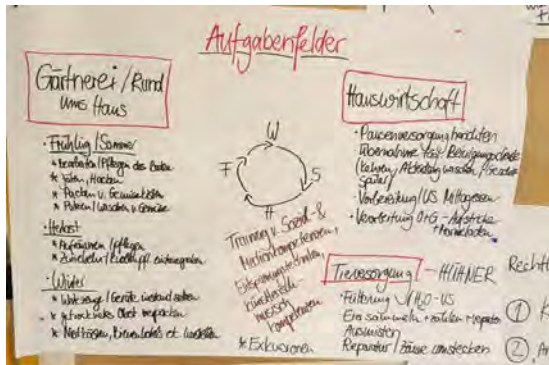 Aufgabenfelder
Gärtnerei / Rund
ums Haus
• Frühling / Sommer
* bearbeiten / Pflegen des Bodens
* Jäten, Hacken
* Packen v. Gemüsekisten
* Putzen / waschen v. Gemüse
• Herbst
* Aufräumen / pflegen
* Zwiebeln /
• Winter
* Werkzeuge / Geräte instand setzen
* getrocknetes Obst verpacken
* Nistkästen, Bienenhotels et
W
F
S
H
Training v. Sozial- &
Medienkompetenzen,
Entspannungstechniken,
künstlerisch-
musisch
Kompetenzen
* Exkursionen
Hauswirtschaft
• Pausenversorgung
Übernahme Reinigungsdienste
(kehren, Abteilung waschen / Geschirr
spülen)
• Vorbereitung / US Mittagessen
• Verarbeitung O+G - Aufstriche
+ Marmeladen
Tierversorgung - HÜHNER
• Fütterung / H2O - US
Eier sammeln + zählen + verpacken
Ausmisten
Reparatur / Zäune umstecken
Rechtl
1
2